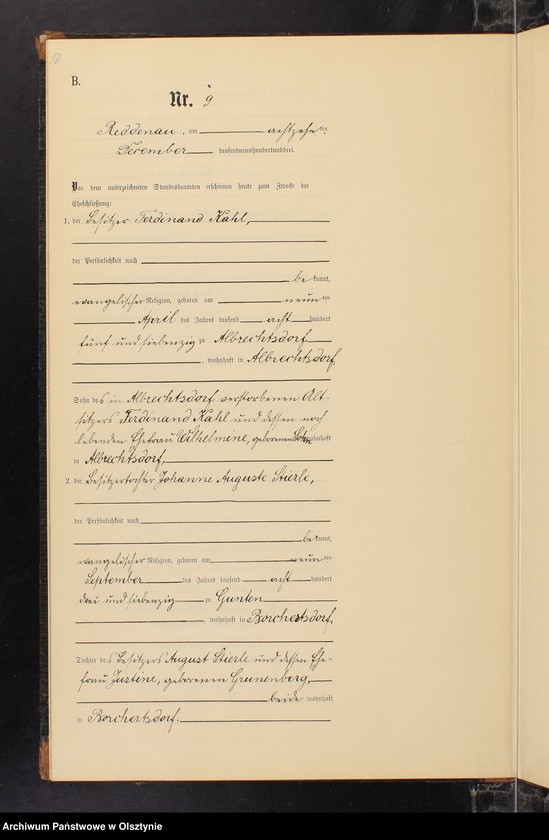 B.
Nr. 9
Reddenau, am achtzehnten
December tausendneunhundertunddrei.
Vor dem unterzeichneten Standesbeamten erschienen heute zum Zwecke der
Eheschließung:
1. der Besitzer Ferdinand Kahl,
der Persönlichkeit nach
be kannt,
evangelischer Religion, geboren am neunten
April des Jahres tausend acht hundert
fünf und siebenzig zu Albrechtsdorf
, wohnhaft in Albrechtsdorf,
Sohn des in Albrechtsdorf verstorbenen Alt-
sitzers Ferdinand Kahl und dessen noch
lebenden Ehefrau Wilhelmine, geborenen wohnhaft
in Albrechtsdorf,
2. die Besitzertochter Johanne Auguste Stierle,
der Persönlichkeit nach
be kannt,
evangelischer Religion, geboren am neunten
September des Jahres tausend acht hundert
drei und siebenzig zu Gunten
, wohnhaft in Borchertsdorf,
Tochter des Besitzers August Stierle und dessen Ehe-
frau Justine, geborenen Grunenberg,
beide wohnhaft
in Borchertsdorf.
Archiwum Państwowe w Olsztynie